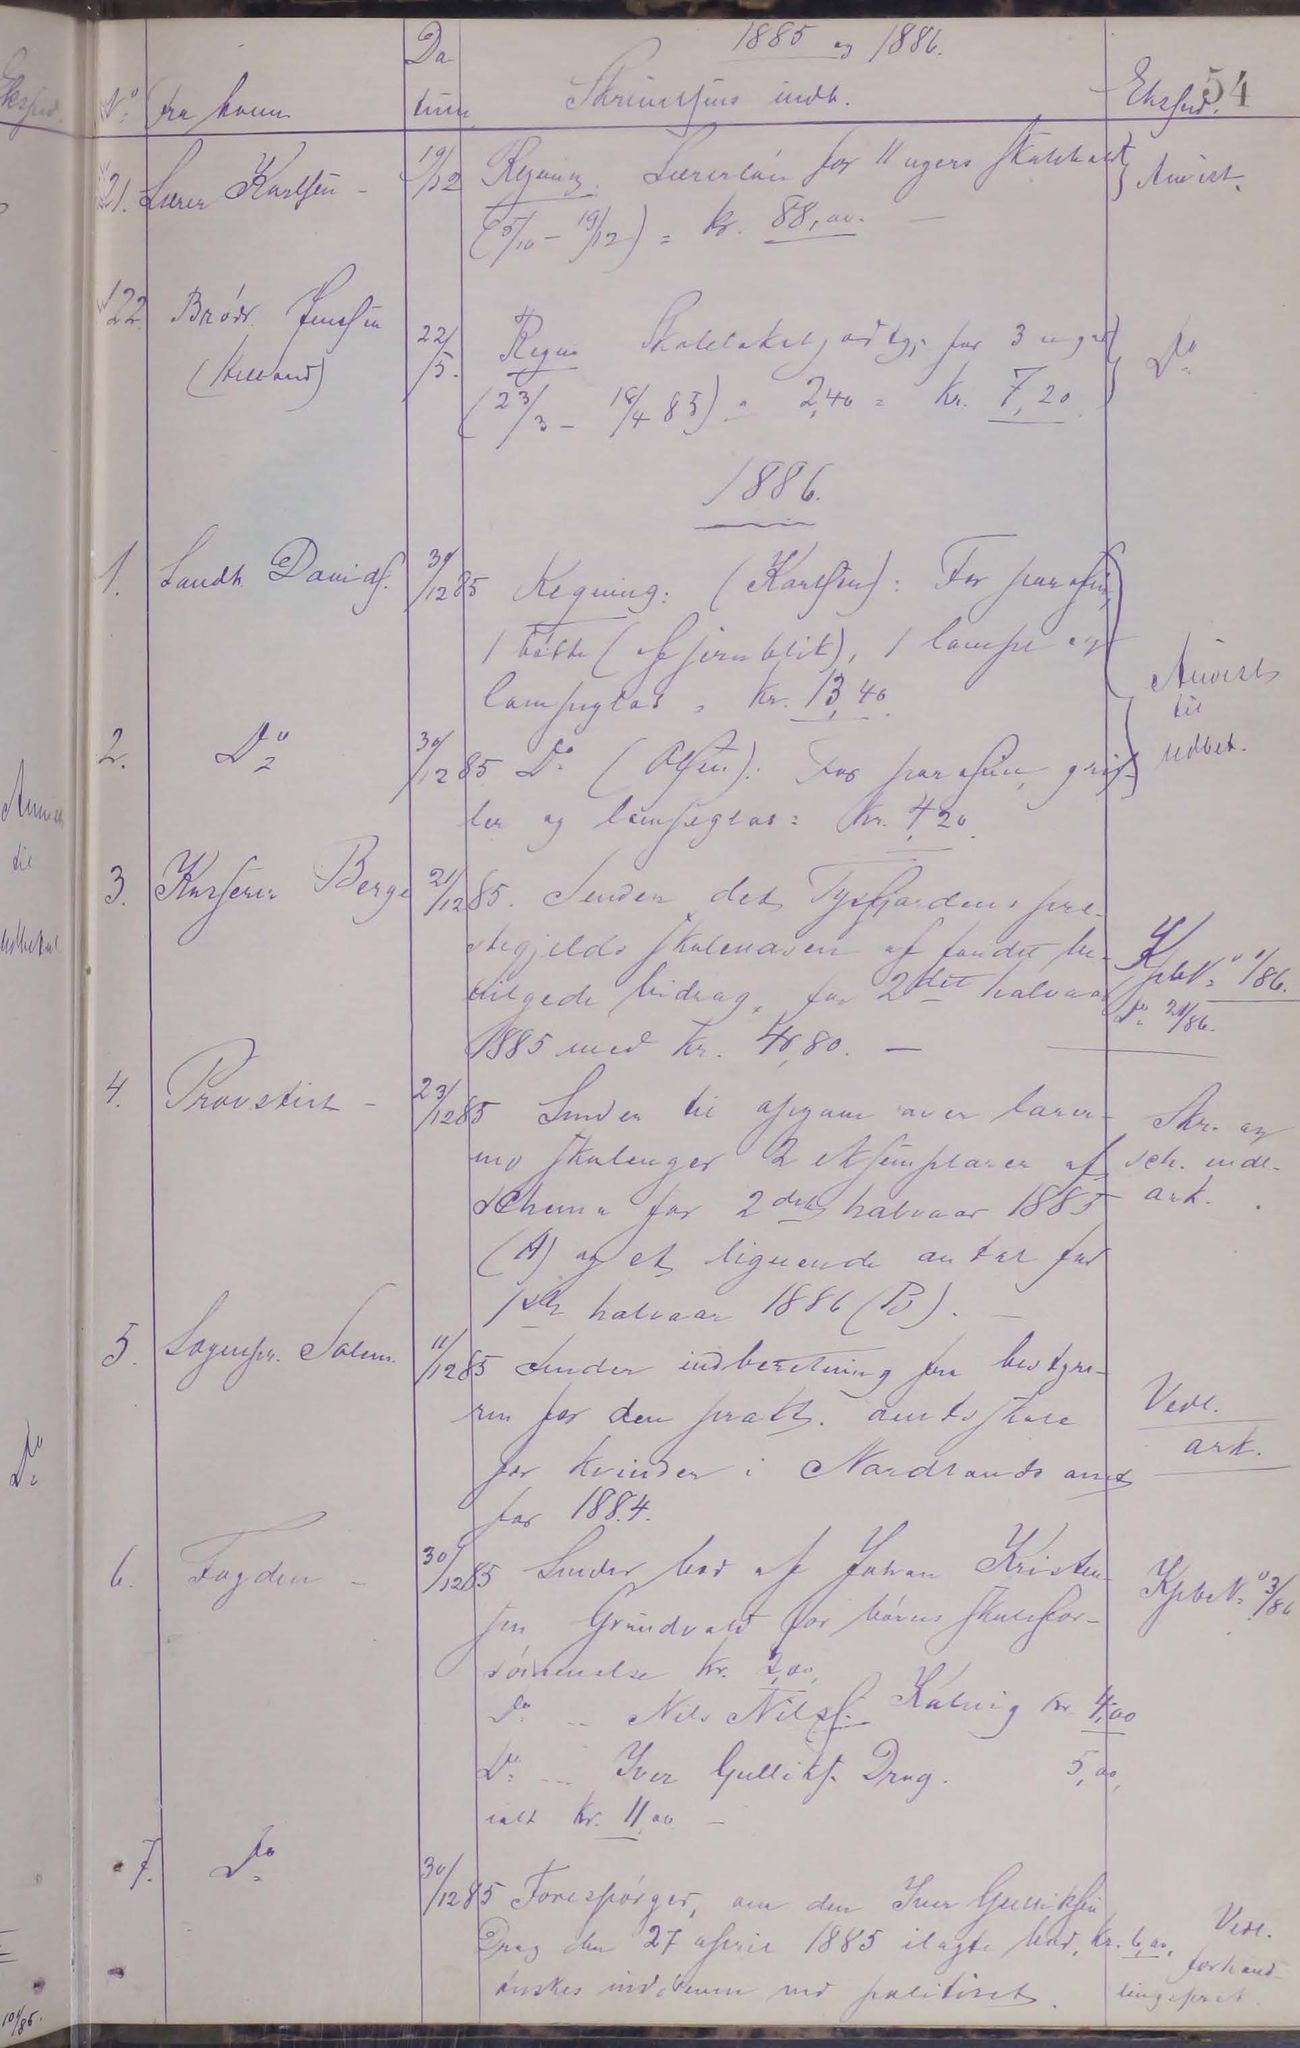 1885 og 1886.
54
No. fra hvem Datum Skrivelsens indh. Eksped.
21. Lærer Karlsen - 19/12 Regning. Lærerløn for 11 ugers skolehold Anvist.
(5/10 - 19/12) = kr. 88,00. -
122. Brødr. Jenssen 22/5. Regn. Skolelokal, godtg. for 3 uger Do
(Helland) (23/3 - 18/4 85) à 2,40 = kr. 7,20
1886.
1. Landh. Davids. 30/12 85 Regning: (Karlsen): For parafin,
1 bøtte (af jernblik), 1 lampe og
lampeglas = kr. 13,40.
Anvist
til
udbet.
2. Do 30/12 85 Do (Olsen): For parafin, grif-
ler og lampeglas = kr. 4,20.
3. Kasserer Berge 21/12 85. Sender det Tysfjordens præ-
stegjelds skolevæsen af fondet be-
vilgede bidrag for 2det halvaar
1885 med kr. 48,80. -
Kpb. No 1/86.
Do 21/86.
4. Provstiet - 23/12 85 Sender til opgave over lærer-
nes skoleuger 2 eksemplarer af
schema for 2det halvaar 1885
(A) og et lignende antal for
1ste halvaar 1886 (B). -
Skr. og
sch. indl.
ark.
5. Sognepr. Solem. 11/12 85 Sender indberetning fra bestyre-
ren for den prakt. amtsskole
for kvinder i Nordlands amt
for 1884.
Vedl.
ark.
6. Fogden - 30/12 85 Sender bod af Johan Kristen-
sen Grundvald for børns skolefor-
sømmelse kr. 2,00,
Do - Nils Nilss. Kalvig kr. 4,00
Do - Iver Gulliks. Drag. 5,00,
ialt kr. 11,00 -
Kpb. No 3/86
7. Do 30/12 85 Forespørger, om den Iver Gulliksen
Drag den 27 april 1885 ilagte bod, kr. 6,00,
ønskes inddreven ved politiet.
Vedl.
forhand-
lingsprot.